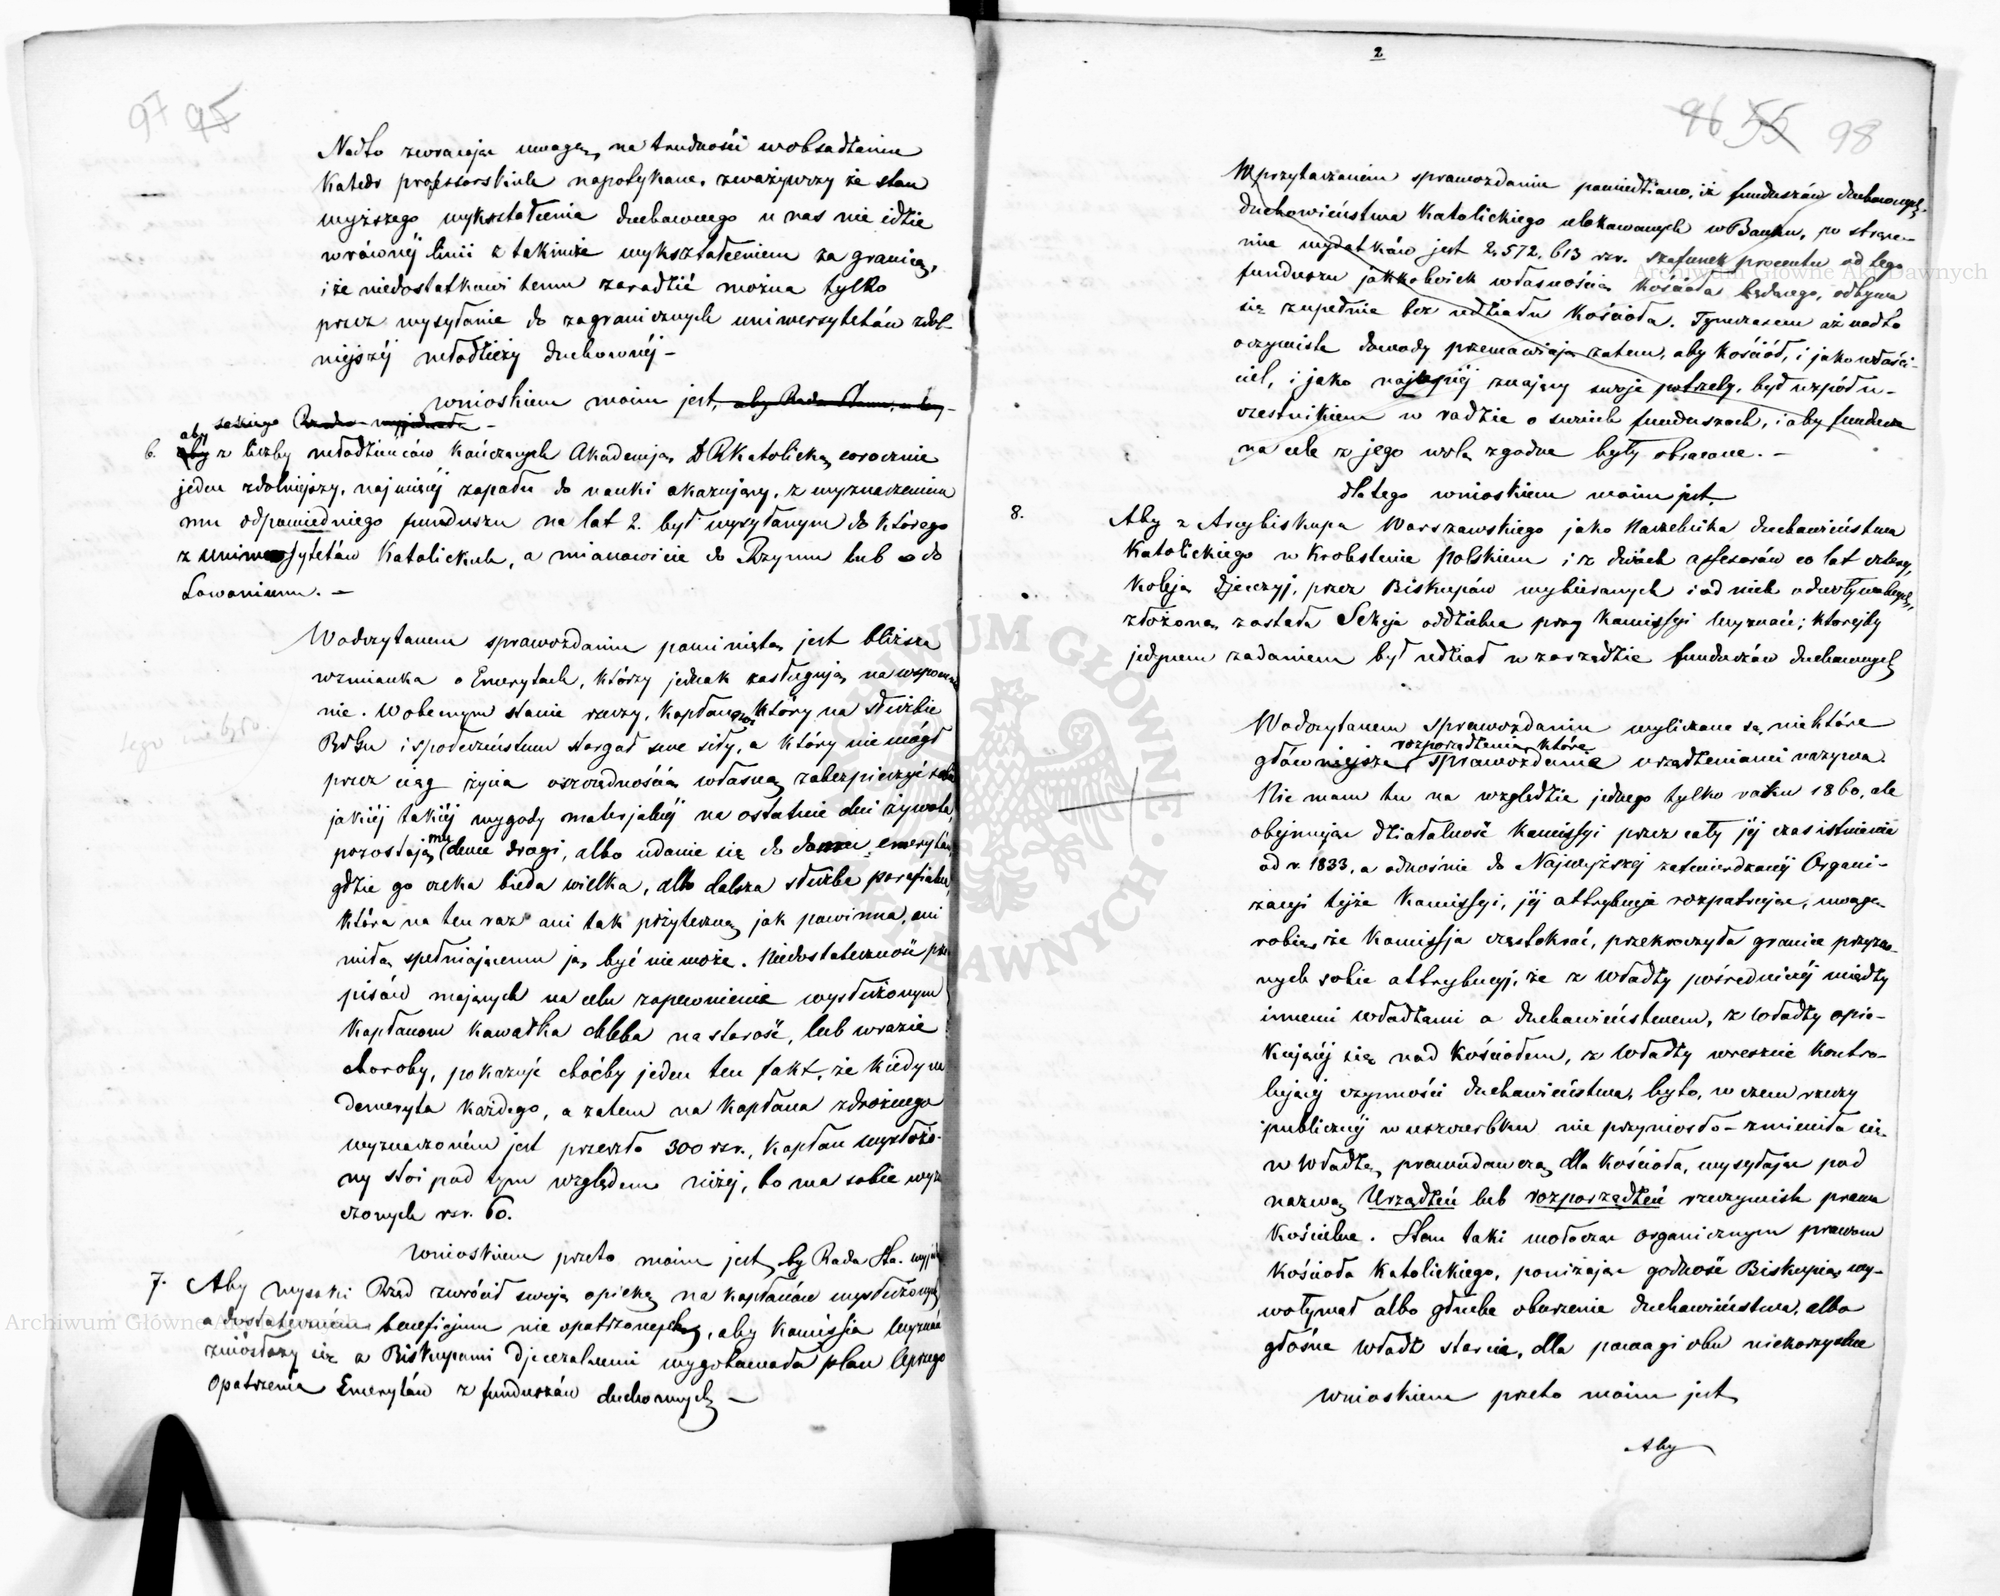 97 95
Nadto zwracając uwagę, na trudności w obsadzeniu
Katedr professorskich napotykane, zważywszy że stan
wyższego wykształcenia duchownego u nas nie idzie
w równéj linii z takimże wykształceniem za granicą,
i że niedostatkowi temu zaradzić można tylko
przez wysyłanie do zagranicznych uniwersytetów zdol-
niejszéj młodzieży duchownéj –
wnioskiem moim jest, aby Rada Stanu,
aby
6. aby z liczby młodzieńców kończących Akademją D. R. Katolicką corocznie
jeden zdolniejszy, najwięcéj zapału do nauki okazujący, z wyznaczeniem
mu odpowiedniego funduszu na lat 2. był wysyłanym do którego
z uniwersytetów Katolickich, a mianowicie do Rzymu lub do
Lowanium. –
W odczytanem sprawozdaniu pominięta jest bliższa
wzmianka o Emerytach, którzy jednak zasługują na wspomnie
nie. W obecnym stanie rzeczy, Kapłanowi, który na służbie
Bogu i społeczeństwu stargał swe siły, a który nie mógł
przez ciąg życia oszczędnością własną zabezpieczyć sobie
jakiéj takiéj wygody materjalnéj na ostatnie dni żywota,
pozostają mu dwie drogi, albo udanie się do domu emerytów,
gdzie go czeka bieda wielka, albo dalsza służba parafialna,
która na ten raz ani tak pożyteczną jak powinna, ani
miłą spełniającemu ją być nie może. Niedostateczność prze
pisów mających na celu zapewnienie wysłużonym
Kapłanom kawałka chleba na starość, lub w razie
choroby, pokazuje choćby jeden ten fakt, że kiedy na
demeryta każdego, a zatem na Kapłana zdrożnego
wyznaczoném jest przeszło 300 rsr., Kapłan wysłużo-
ny stoi pod tym względem niżéj, bo ma sobie wyzna
czonych rsr. 60.
Wnioskiem przeto moim jest, by Rada Sta.
7. Aby wysoki Rząd zwrócił swoją opiekę na kapłanów wysłużonych
a dostateczném beneficjum nie opatrzonych, aby Komissja Wyznań
zniósłszy się z Biskupami Djecezalnemi wygotowała plan lepszego
opatrzenia Emerytów z funduszów duchownych –
tego nie było
2
96 55 98
W przytaczanem sprawozdaniu powiedziano, iż funduszów duchownych
duchowieństwa Katolickiego ulokowanych w Banku, po strące-
niu wydatków jest 2,572,613 rsr. szafunek procentu od tego
funduszu jakkolwiek własnością Kościoła będącego, odbywa
się zupełnie bez udziału Kościoła. Tymczasem aż nadto
oczywiste dowody przemawiają zatem, aby Kościół, i jako właści-
ciel, i jako najlepiéj znający swoje potrzeby, był uspółu-
czestnikiem w radzie o swoich funduszach, i aby fundusze
na cele z jego wolą zgodne były obracane. –
dlatego wnioskiem moim jest,
8. Aby z Arcybiskupa Warszawskiego jako Naczelnika duchowieństwa
Katolickiego w Królestwie Polskiem i z dwóch assesorów co lat cztery,
koleją Djecezyj, przez Biskupów wybieranych i od nich odwoływalnych,
złożona została Sekcja oddzielna przy Komissyi Wyznań; któréjby
jedynem zadaniem był udział w zarządzie funduszów duchownych
W odczytanem sprawozdaniu wyliczone są niektóre
rozporządzenia, które
główniejsze, sprawozdanie urządzeniami nazywa.
Nie mam tu na względzie jednego tylko roku 1860, ale
obejmując działalność Komissyi przez cały jéj czas istnienia
od r. 1833, a odnośnie do Najwyższej zatwierdzonéj Organi-
zacyi tejże Komissyi, jéj attrybucje rozpatrując, uwagę
robię, że Komissja częstokroć, przekroczyła granice przyzna-
nych sobie attrybucyj, że z władzy pośredniczéj między
innemi władzami a duchowieństwem, z władzy opie-
kującéj się nad Kościołem, z władzy wreszcie kontro-
lującéj czynności duchowieństwa, byto, w czem rzeczy
publicznéj w uszczerbku nie przyniosło – zmieniła się
w władzę prawodawczą dla Kościoła, wysyłając pod
nazwą Urządzeń lub rozporządzeń rzeczywiste prawa
Kościelne. Stan taki uwłaczał organicznym prawom
Kościoła Katolickiego, poniżając godność Biskupią wy-
woływał albo głuche oburzenie duchowieństwa, albo
głośne władz starcie, dla powagi obu niekorzystne
Wnioskiem przeto moim jest,
Aby